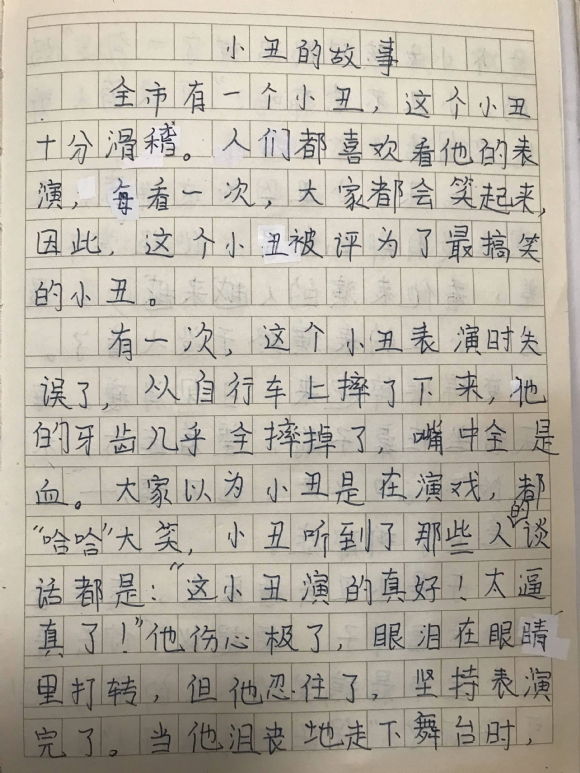 小丑的故事
全市有一个小丑，这个小丑
十分滑稽。人们都喜欢看他的表
演，每看一次，大家都会笑起来，
因此，这个小丑被评为了最搞笑
的小丑。
有一次，这个小丑表演时失
误了，从自行车上摔了下来，他
的牙齿几乎全摔掉了，嘴中全是
血。大家以为小丑是在演戏，都
“哈哈”大笑，小丑听到了那些人的谈
话都是：“这小丑演的真好！太逼
真了！”他伤心极了，眼泪在眼睛
里打转，但他忍住了，坚持表演
完了。当他沮丧地走下舞台时，